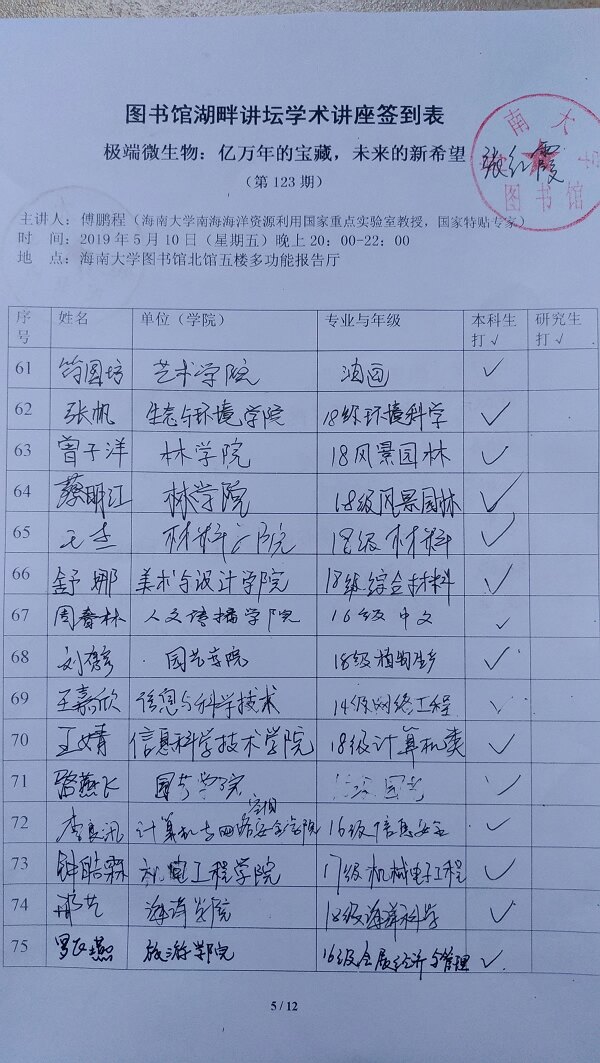 图书馆湖畔讲坛学术讲座签到表
极端微生物：亿万年的宝藏，未来的新希望
（第 123 期）
张红霞
南 大
图书馆
主讲人：傅鹏程（海南大学南海海洋资源利用国家重点实验室教授，国家特贴专家）
时 间：2019 年 5 月 10 日（星期五）晚上 20：00-22：00
地 点：海南大学图书馆北馆五楼多功能报告厅
序号 姓名 单位（学院） 专业与年级 本科生打√ 研究生打√
61 符图坊 艺术学院 油画 ✓
62 张帆 生态与环境学院 18级环境科学 ✓
63 曾子洋 林学院 18风景园林 ✓
64 蔡明江 林学院 18级风景园林 ✓
65 王杰 材料学院 18级材料 ✓
66 舒娜 美术与设计学院 18级综合材料 ✓
67 周春林 人文传播学院 16级中文 ✓
68 园艺学院 18级植物生 ✓
69 王嘉欣 信息与科学技术 14级网络工程 ✓
70 王婧 信息科学技术学院 18级计算机类 ✓
71 骆燕飞 园艺学院 园艺 ✓
72 李良汛 计算机与网络空间安全学院 16级信息安全 ✓
73 钟皓霖 机电工程学院 17级机械电子工程 ✓
74 海洋学院 18级海洋科学 ✓
75 旅游学院 16级会展经济与管理 ✓
5 / 12